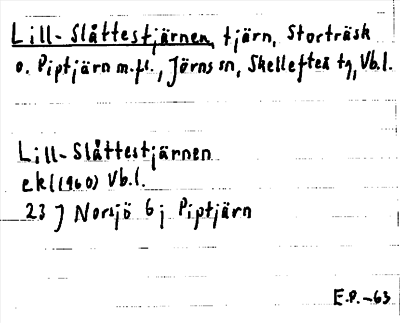 Lill-Slåttestjärnen, tjärn, Storträsk
o. Piptjärn m.fl., Jörns sn, Skellefteå tg, Vb.l.
Lill-Slåttestjärnen
ekl(1960) Vb.l.
23 J Norsjö 6 j Piptjärn
E.P.-63